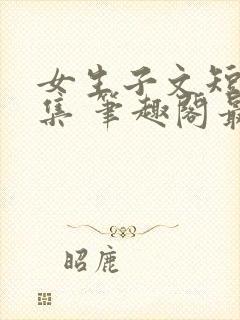 女生子文短
集 笔趣阁最
昭鹿